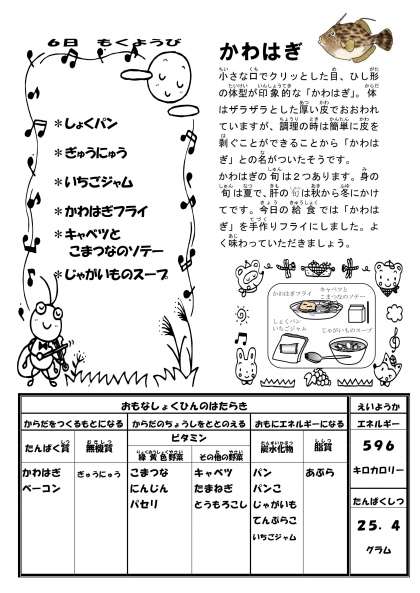 6日 もくようび
*しょくパン
*ぎゅうにゅう
*いちごジャム
*かわはぎフライ
*キャベツと
こまつなのソテー
*じゃがいものスープ
かわはぎ
小さな口でクリッとした目、ひし形
の体型が印象的な「かわはぎ」。体
はザラザラとした厚い皮でおおわれ
ていますが、調理の時は簡単に皮を
剥ぐことができることから「かわは
ぎ」との名がついたそうです。
かわはぎの旬は2つあります。身の
旬は夏で、肝の旬は秋から冬にかけ
てです。今日の給食では「かわは
ぎ」を手作りフライにしました。よ
く味わっていただきましょう。
かわはぎフライ
キャベツと
こまつなのソテー
しょくパン
いちごジャム
じゃがいものスープ
おもなしょくひんのはたらき
えいようか
からだをつくるもとになる
からだのちょうしをととのえる
おもにエネルギーになる
エネルギー
たんぱく質
無機質
ビタミン
緑黄色野菜
その他の野菜
炭水化物
脂質
596
キロカロリー
かわはぎ
ベーコン
ぎゅうにゅう
こまつな
にんじん
パセリ
キャベツ
たまねぎ
とうもろこし
パン
パンこ
じゃがいも
てんぷらこ
いちごジャム
あぶら
たんぱくしつ
25.4
グラム